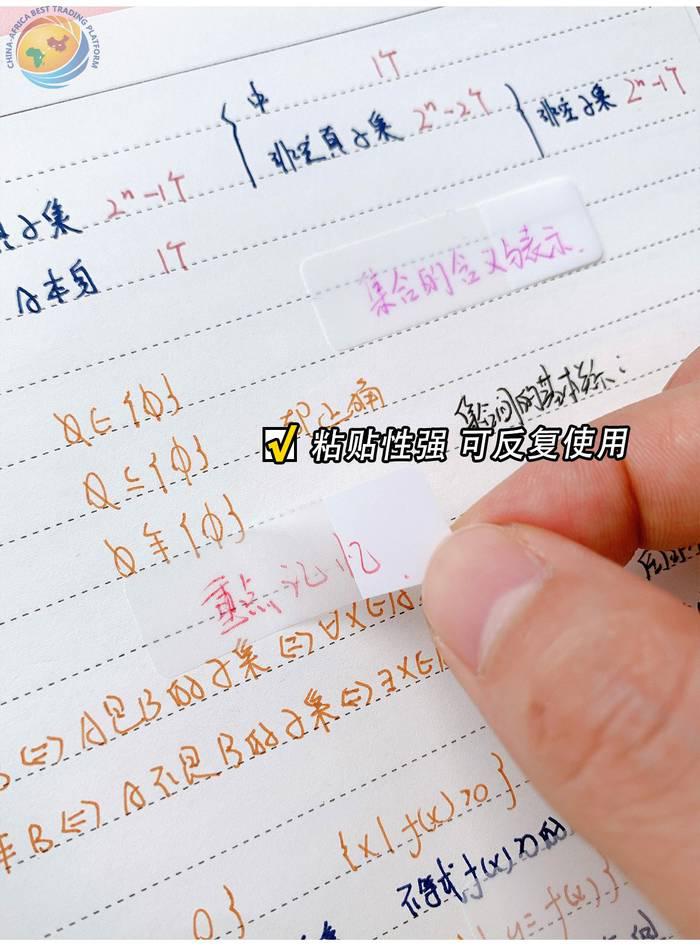 CHINA-AFRICA BEST TRADING PLATFORM
1个
非空真子集 2ⁿ-2个
非空子集 2ⁿ-1个
子集 2ⁿ-1个
本身 1个
集合的含义与表示
∈{φ}
都正确
集合间的基本关系:
⊆{φ}
粘贴性强 可反复使用
{φ}
重点记忆
⇔A是B的子集⇔∀x∈A
B⇔A不是B的子集⇔∃x∈
{x|f(x)>0}
不等式f(x)>0的
0}
y=f(x)}